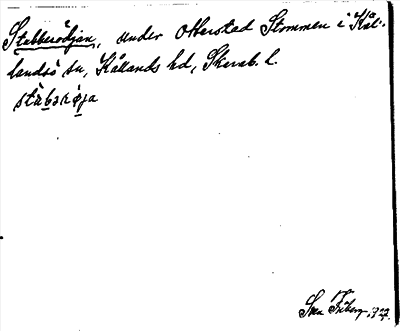 Stubberödjan, under Otterstad Stommen i Kål-
landsö sn, Kållands hd, Skarab. l.
Sven Friberg